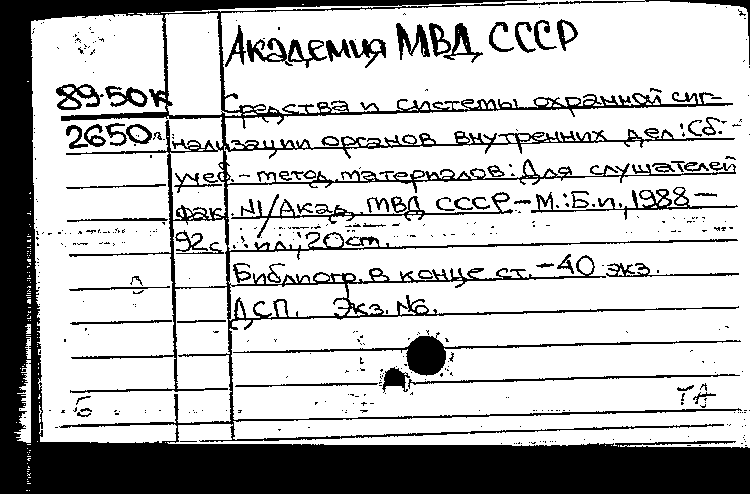 Академия МВД СССР
89-50к
Средства и системы охранной сиг-
2650л.
нализации органов внутренних дел: Сб.
учеб.-метод. материалов: Для слушателей
фак. N1/Акад. МВД СССР - М.: Б.и., 1988 -
92с. : ил.; 20см.
Библиогр. в конце ст. - 40 экз.
ДСП. Экз. №6.
Б
ТА